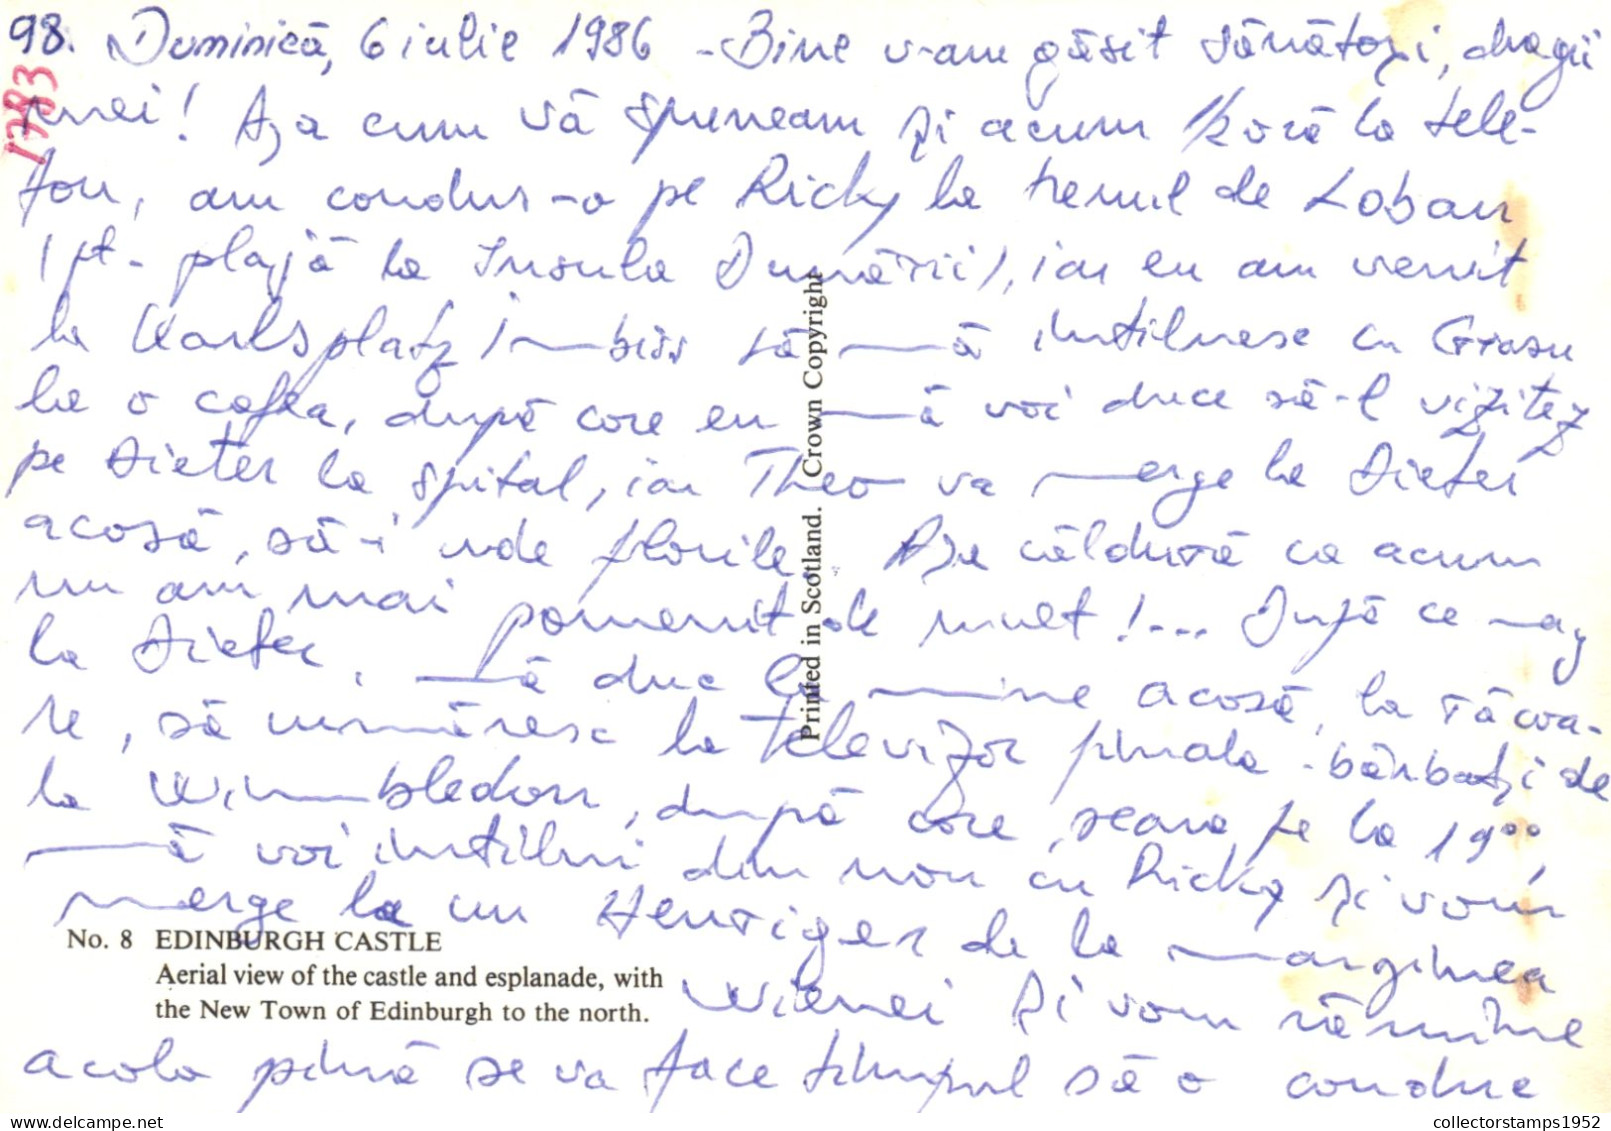 98. Duminică, 6 iulie 1986 - Bine v-am găsit sănătoși, dragii
1783
mei! Așa cum vă spuneam și acum 1/2 oră la tele-
fon, am condus-o pe Ricky la trenul de Lobau
(pt. plajă la Insula Dunării), iar eu am venit
la Karlsplatz Imbiss să mă întîlnesc cu Grasu
la o cafea, după care eu mă voi duce să-l vizitez
pe Dieter la spital, iar Theo va merge la Dieter
acasă, să-i ude florile. Așa căldură ca acum
nu am mai pomenit de mult!... După ce merg
la Dieter, mă duc la mine acasă, la răcoa-
re, să urmăresc la televizor finala - bărbați de
la Wimbledon, după care, seara pe la 19⁰⁰,
mă voi întîlni din nou cu Ricky și vom
merge la un Heuriger de la marginea
Vienei și vom rămîne
acolo pînă se va face timpul să o conduc
No. 8 EDINBURGH CASTLE
Aerial view of the castle and esplanade, with
the New Town of Edinburgh to the north.
Printed in Scotland. Crown Copyright
collectorstamps1952